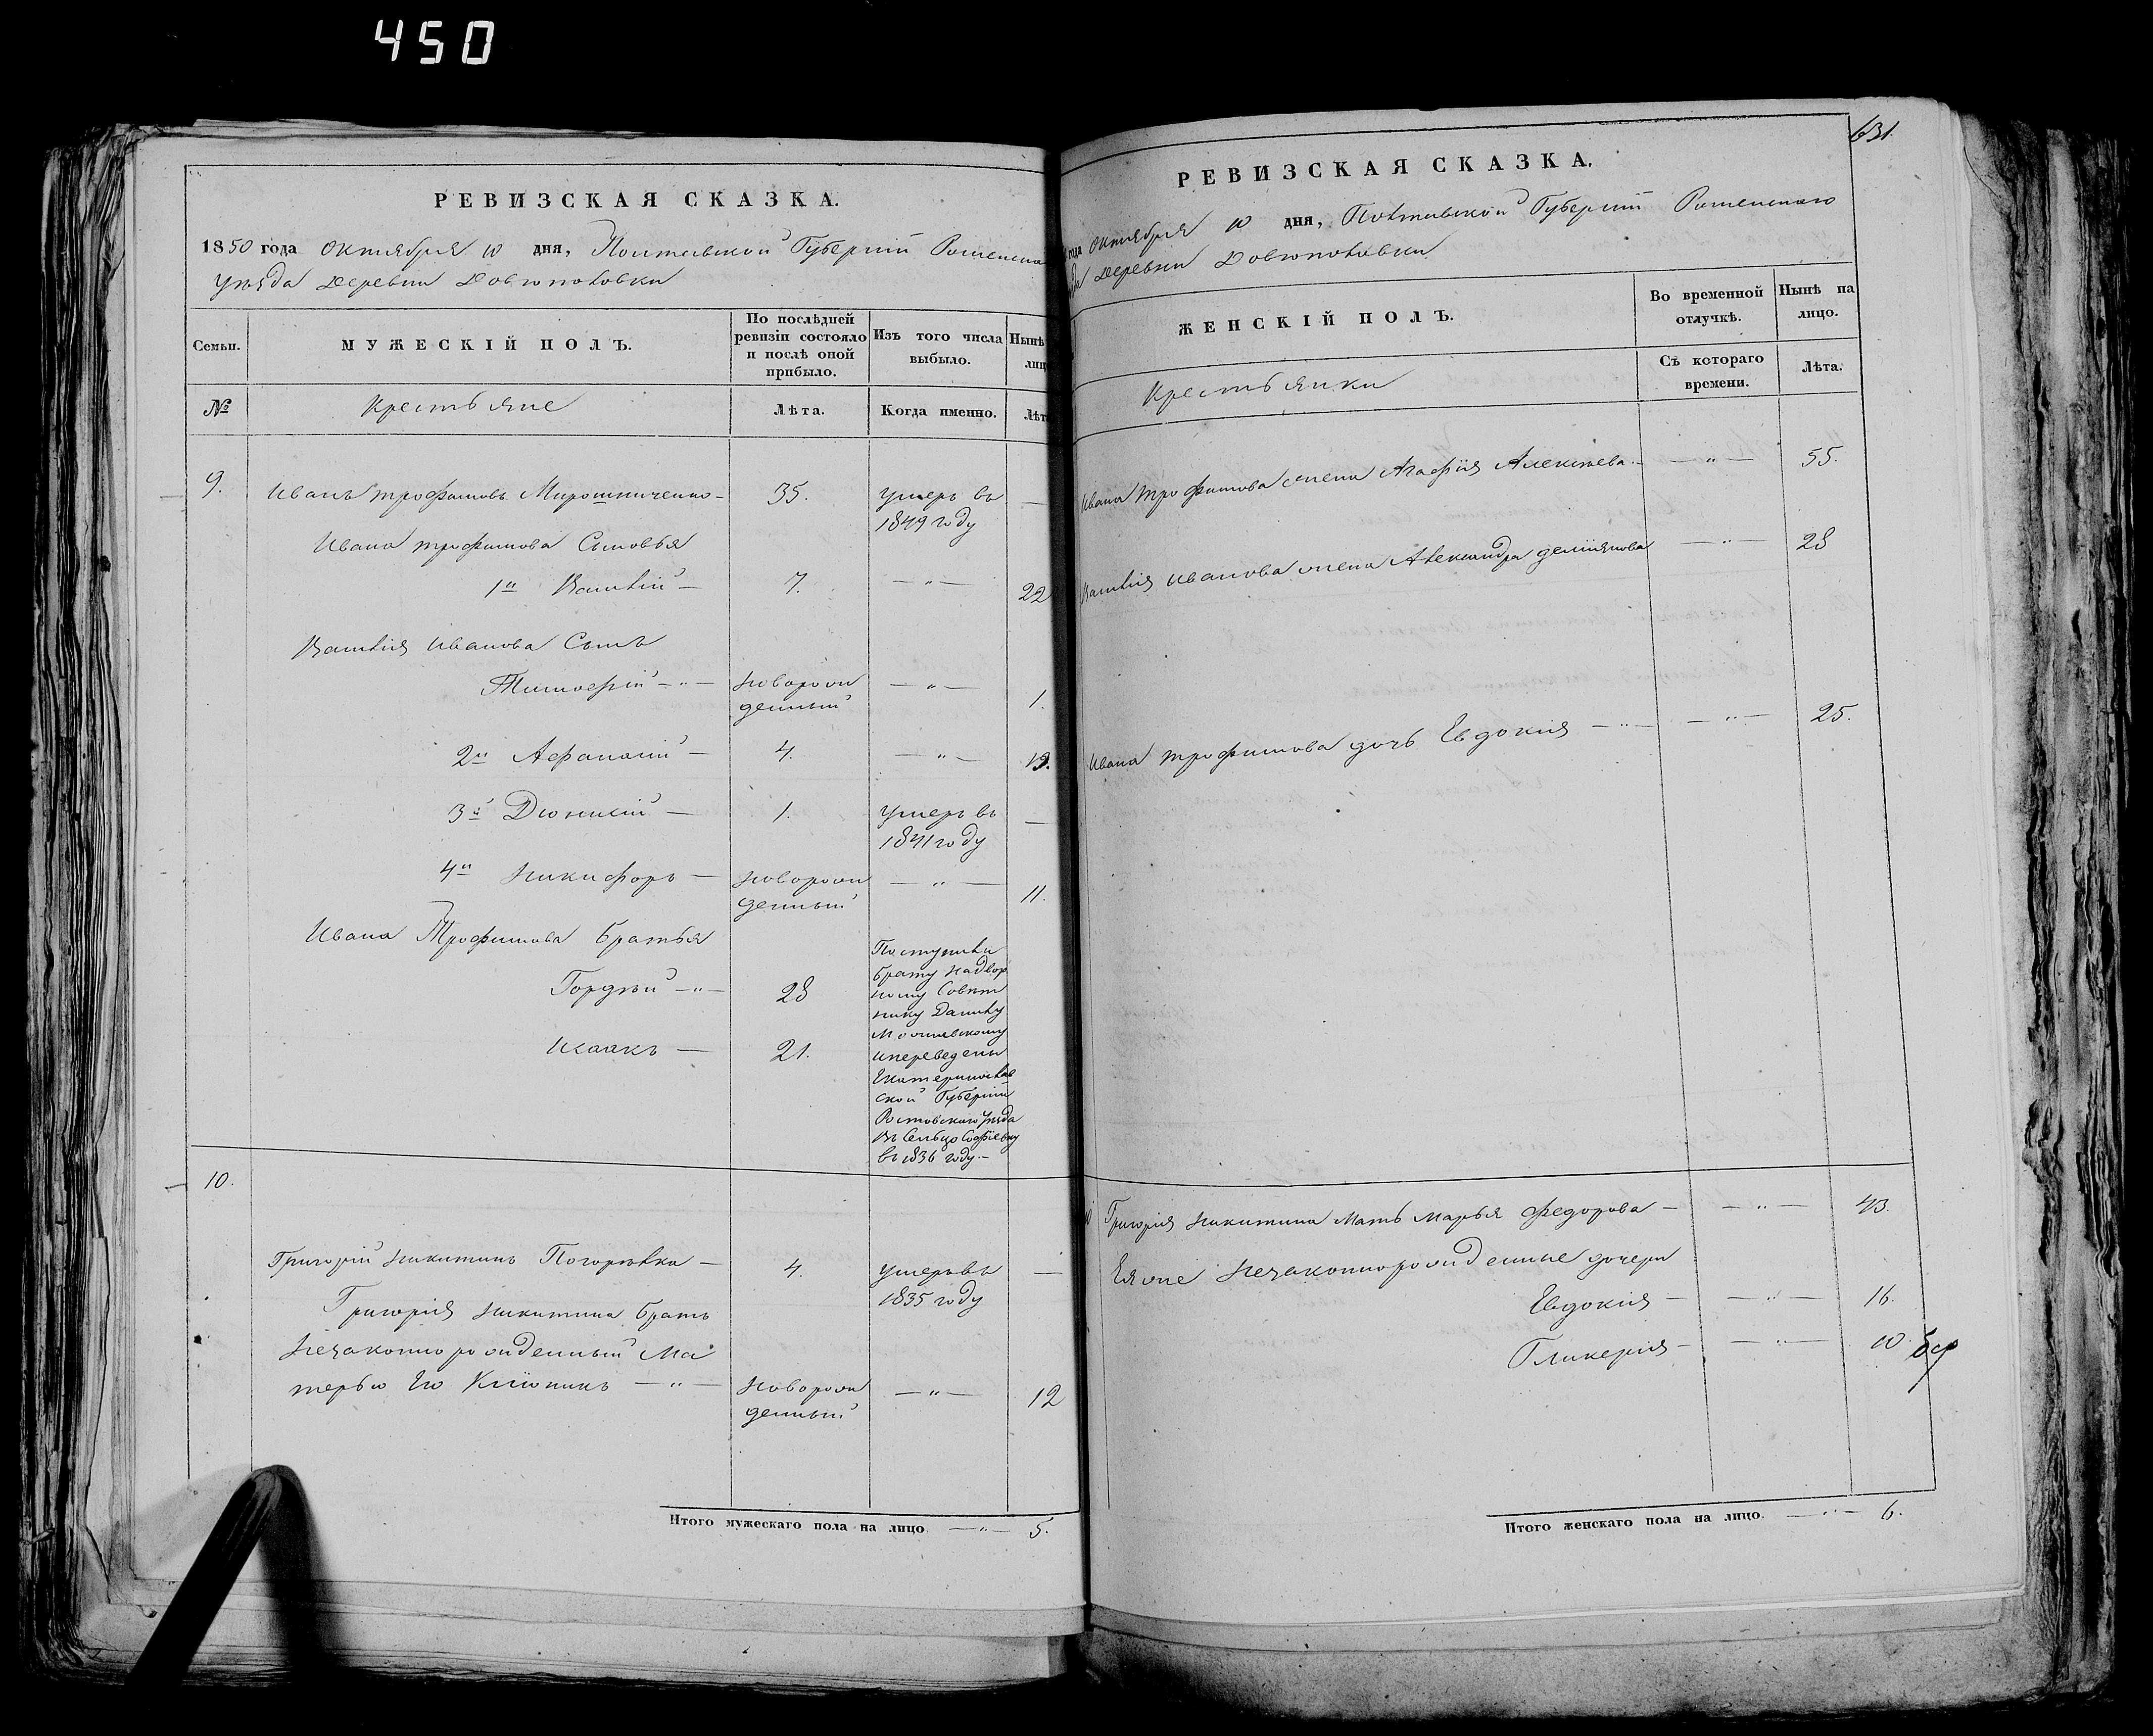 450
РЕВИЗСКАЯ СКАЗКА.
1850 года Октября 10 дня, Полтавской Губерніи Роменска
уѣзда деревни Довгополовки
Семьи.
МУЖЕСКІЙ ПОЛЪ.
По послѣдней
ревизіи состояло
и послѣ оной
прибыло.
Изъ того числа
выбыло.
Нынѣ
лиц
№
Крестьяне
Лѣта.
Когда именно.
Лѣт
9.
Иванъ Трофимовъ Мирошниченко — 35. умеръ въ —
1849 году
Ивана Трофимова Сыновья
1й Василій — 7. — " — 22
Василія Иванова Сынъ
Тимофій — " — новорож — " — 1.
денный
2й Афанасій — 4. — " — 19.
3й Діонисій — 1. умеръ въ —
1841 году
4й Никифоръ — новорож — " — 11.
денный
Ивана Трофимова Братья
Гордѣй — " — 28
Исаакъ — 21.
Поступили
брату надвор
ному Совѣт
нику Данилу
и переведены
Екатеринослав
ской Губерніи
Ростовского уѣзда
въ Сельцо Софіевку
въ 1836 году. —
10.
Григорій Никитинъ Погорѣлко — 4. умеръ въ —
1835 году
Григорія Никитина братъ
незаконнорожденный Ма
терью Его — " — новорож — " — 12
денный
Итого мужескаго пола на лицо — " — 5.
631.
РЕВИЗСКАЯ СКАЗКА.
года Октября 10 дня, Полтавской Губерніи Роменского
да деревни Довгополовки
ЖЕНСКІЙ ПОЛЪ.
Во временной
отлучкѣ.
Нынѣ на
лицо.
Крестьянки
Съ котораго
времени.
Лѣта.
Ивана Трофимова жена Агафія Алексѣева. — — " — 55.
Василія Иванова жена Александра Деміянова — " — 28
Ивана Трофимова дочь Евдокія — " — — " — 25.
Григорія Никитина Мать Марья Федорова — — " — 43.
Ея же незаконнорожденные дочери
Евдокія — — " — 16.
Гликерія — — " — 10
Итого женскаго пола на лицо. — " — 6.